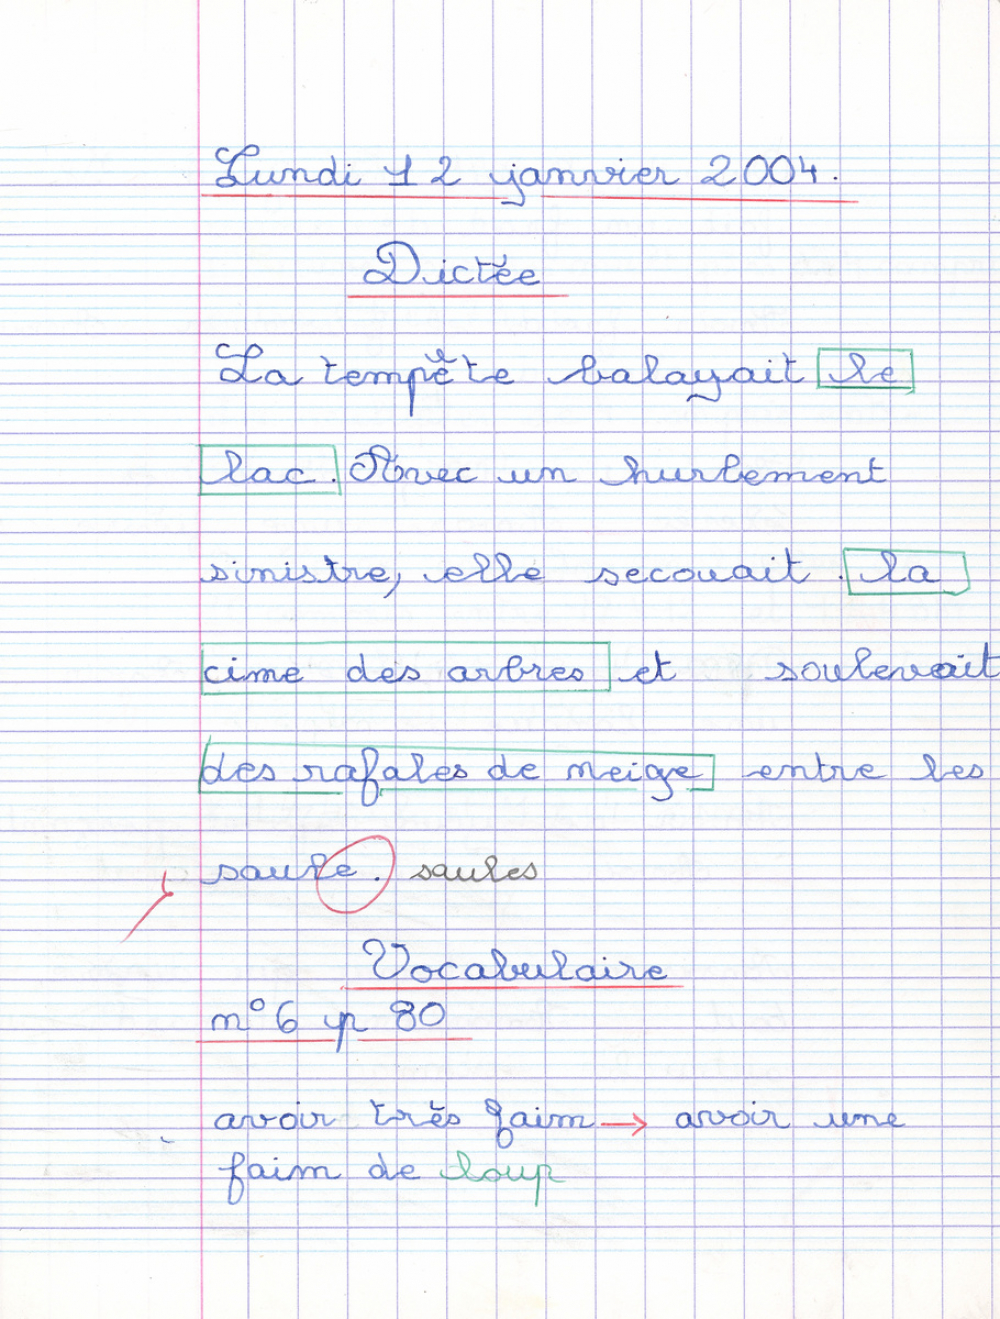 Lundi 12 janvier 2004.
Dictée
La tempête balayait le
lac. Avec un hurlement
sinistre, elle secouait la
cime des arbres et soulevait
des rafales de neige entre les
saule. saules
Vocabulaire
n°6 p 80
avoir très faim → avoir une
faim de loup